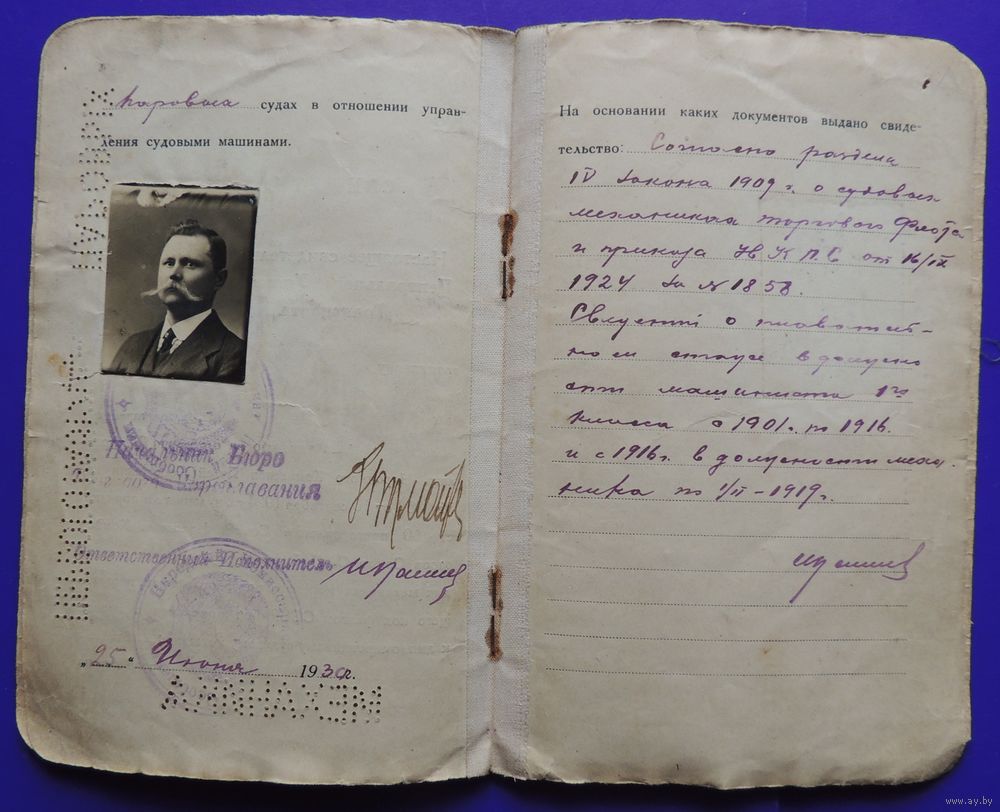 паровых судах в отношении управ-
ления судовыми машинами.
Начальник Бюро
Ответственный Исполнитель
„25" Июня 1930г.
МЕХАНИКА
На основании каких документов выдано свиде-
тельство: Согласно раздела
IV Закона 1909 г. о судовых
механиках торгового флота
и приказа НКПС от 16/IX
1924 за № 1858.
о плаватель-
ном в должно
сти машиниста 1го
класса с 1901г. по 1916.
и с 1916г. в должности меха
ника по 1/II-1919г.
www.ay.by